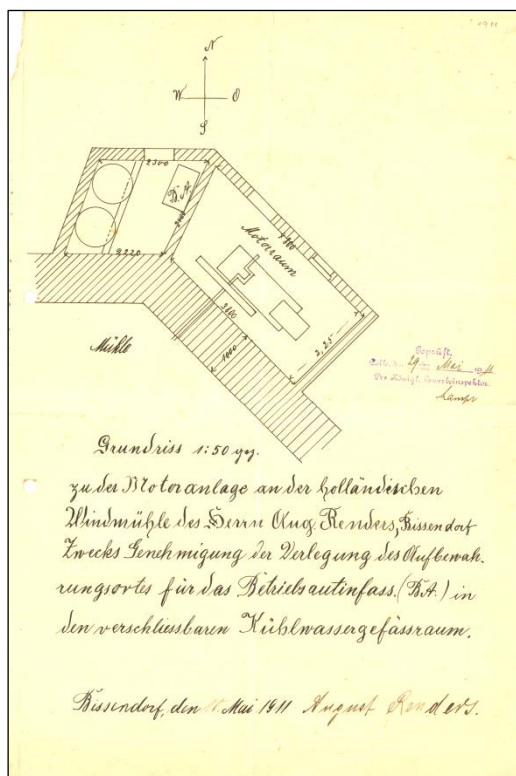 1911
N
W O
S
2300
B. A.
4900
Motorraum
3220
3600
1000
2,25
Mühle
Geprüft,
29 ten Mai 1911
Der Königl. Gewerbeinspektor.
Grundriss 1:50 gez.
zu der Motoranlage an der holländischen
Windmühle des Herrn Aug. Renders, Bissendorf
Zwecks Genehmigung der Verlegung des Aufbewah-
rungsortes für das Betriebsautinfass. (B.A.) in
den verschliessbaren Kühlwassergefässraum.
Bissendorf, den Mai 1911 August Renders.